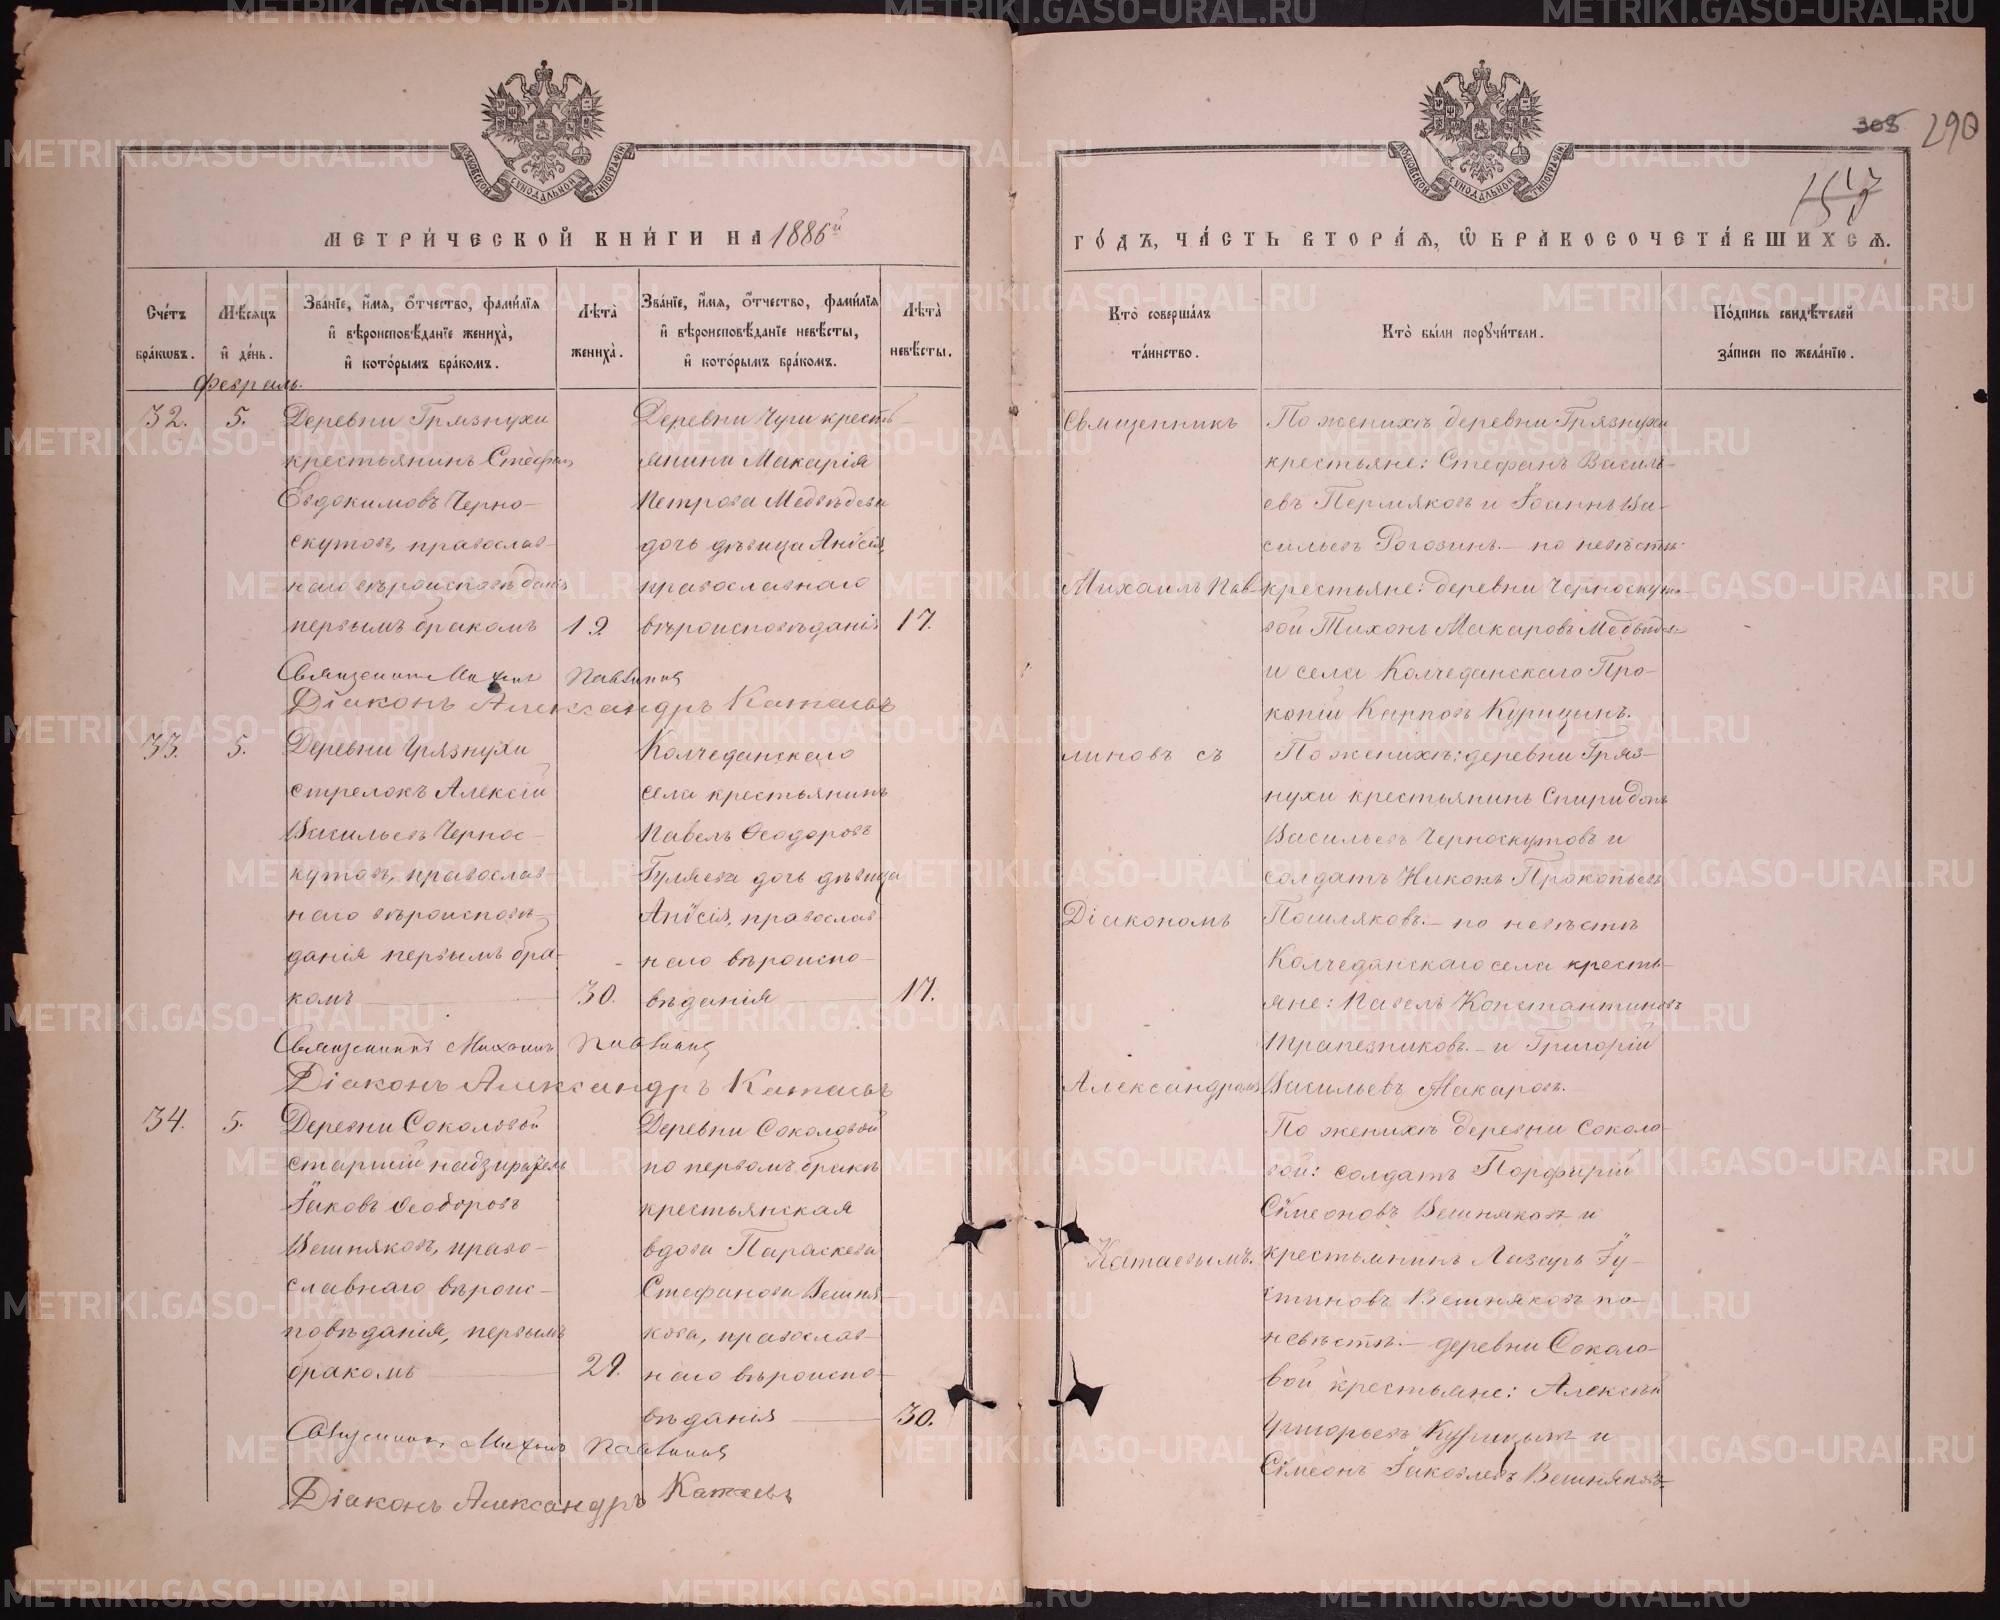 МОСКОВСКОЙ СѴНОДАЛЬНОЙ ТИПОГРАФІИ
МЕТРИ́ЧЕСКОЙ КНИ́ГИ НА 1886й
Сче́тъ бра́кωвъ.
Мѣ́сяцъ и҆ де́нь.
Зва́нїе, и҆́мѧ, ѻ҆́тчество, фами́лїѧ
и҆ вѣроисповѣ́данїе жениха̀,
и҆ кото́рымъ бра́комъ.
Лѣ́та̀ жениха̀.
Зва́нїе, и҆́мѧ, ѻ҆́тчество, фами́лїѧ
и҆ вѣроисповѣ́данїе невѣ́сты,
и҆ кото́рымъ бра́комъ.
Лѣ́та̀ невѣ́сты.
Февраль.
32.
5.
Деревни Грязнухи
крестьянинъ Стефанъ
Евдокимовъ Черно-
скутовъ, православ-
наго вѣроисповѣданія
первымъ бракомъ
19.
Деревни Чуги кресть-
янина Макарія
Петрова Медвѣдева
дочь дѣвица Анѵсія,
православнаго
вѣроисповѣданія
17.
Священникъ Михаилъ Павлиновъ
Діаконъ Александръ Катаевъ
33.
5.
Деревни Грязнухи
стрелокъ Алексій
Васильевъ Чернос-
кутовъ, православ-
наго вѣроисповѣ-
данія первымъ бра-
комъ
30.
Колчеданскаго
села крестьянинъ
Павелъ Ѳеодоровъ
Гуляева дочь дѣвица
Анѵсія, православ-
наго вѣроиспо-
вѣданія
17.
Священникъ Михаилъ Павлиновъ
Діаконъ Александръ Катаевъ
34.
5.
Деревни Соколовой
старшій надзиратель
Іаковъ Ѳеодоровъ
Вешняковъ, право-
славнаго вѣроис-
повѣданія, первымъ
бракомъ
29.
Деревни Соколовой
по первомъ бракѣ
крестьянская
вдова Параскева
Стефанова Вешня-
кова, православ-
наго вѣроиспо-
вѣданія
30.
Священникъ Михаилъ Павлиновъ
Діаконъ Александръ Катаевъ
308 290
МОСКОВСКОЙ СѴНОДАЛЬНОЙ ТИПОГРАФІИ
ГО́ДЪ, ЧА́СТЬ ВТОРА́Ѧ, Ѡ҆ БРАКОСОЧЕТА́ВШИХСѦ.
Кто̀ соверша́лъ
та́инство.
Кто̀ бы́ли порꙋчи́тели.
По́дпись свидѣ́телей
за́писи по жела́нїю.
Священникъ
Михаилъ Пав-
линовъ съ
Діакономъ
Александромъ
Катаевымъ.
По женихѣ деревни Грязнухи
крестьяне: Стефанъ Василь-
евъ Пермяковъ и Іоаннъ Ва-
сильевъ Рогозинъ.- по невѣстѣ
крестьяне: деревни Черноскуто-
вой Тихонъ Макаровъ Медвѣдевъ
и села Колчеданскаго Про-
копій Карповъ Курицынъ.
По женихѣ: деревни Гряз-
нухи крестьянинъ Спиридонъ
Васильевъ Черноскутовъ и
солдатъ Никонъ Прокопьевъ
Пошляковъ.- по невѣстѣ
Колчеданскаго села кресть-
яне: Павелъ Константиновъ
Трапезниковъ.- и Григорій
Васильевъ Макаровъ.
По женихѣ деревни Соколо-
вой: солдатъ Порфирій
Сѵмеоновъ Вешняковъ и
крестьянинъ Лазарь Іу-
стиновъ Вешняковъ по
невѣстѣ:- деревни Соколо-
вой крестьяне: Алексѣй
Григорьевъ Курицынъ и
Сѵмеонъ Іаковлевъ Вешняковъ
METRIKI.GASO-URAL.RU